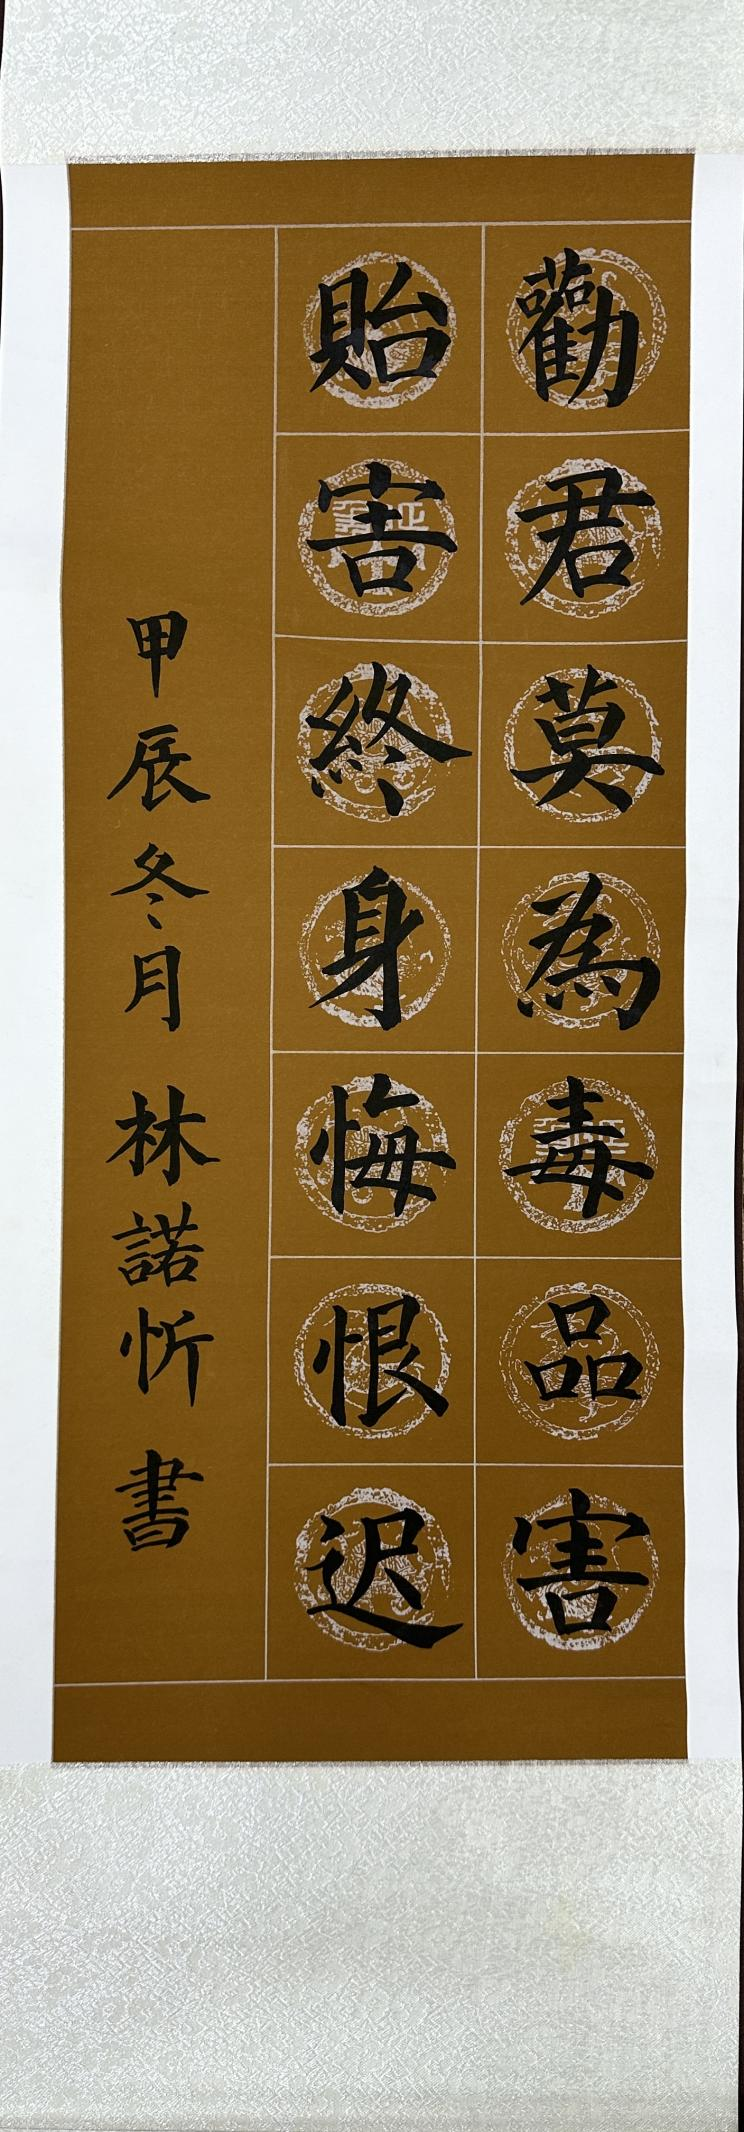 勸君莫為毒品害
貽害終身悔恨迟
甲辰冬月 林諾忻 書